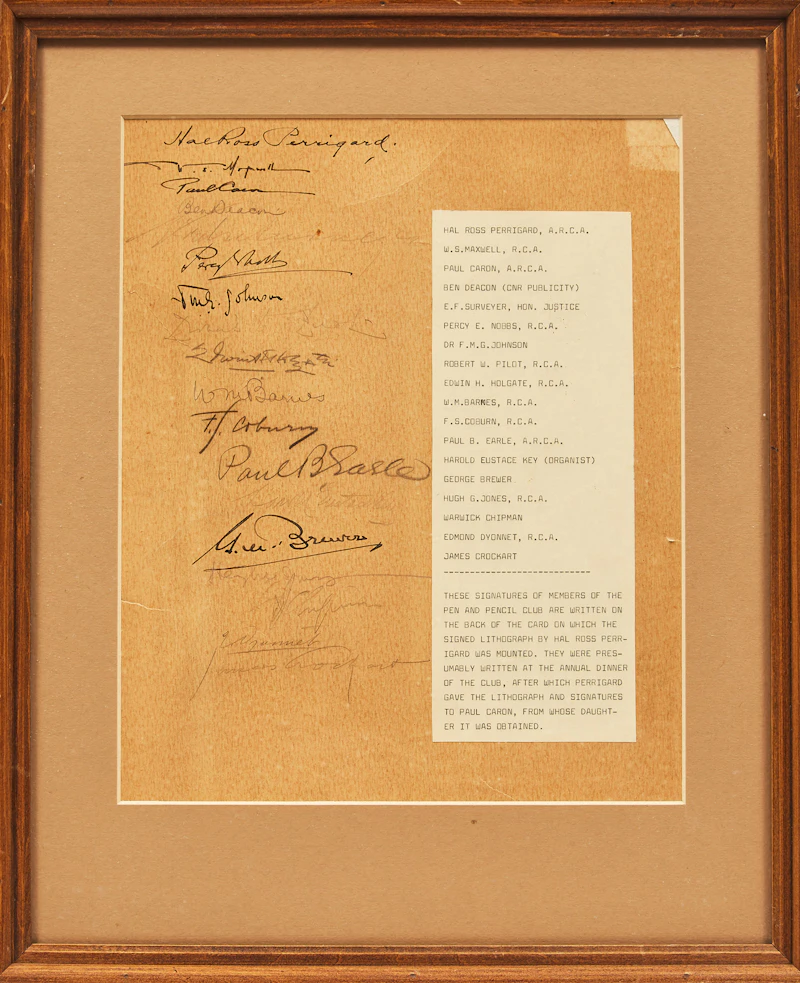 Hal Ross Perrigard.
Paul Caron
Ben Deacon
Percy Nobbs
Wm Barnes
F.S. Coburn
Paul B Earle
Brewer
James Crockart
HAL ROSS PERRIGARD, A.R.C.A.
W.S.MAXWELL, R.C.A.
PAUL CARON, A.R.C.A.
BEN DEACON (CNR PUBLICITY)
E.F.SURVEYER, HON. JUSTICE
PERCY E. NOBBS, R.C.A.
DR F.M.G.JOHNSON
ROBERT W. PILOT, R.C.A.
EDWIN H. HOLGATE, R.C.A.
W.M.BARNES, R.C.A.
F.S.COBURN, R.C.A.
PAUL B. EARLE, A.R.C.A.
HAROLD EUSTACE KEY (ORGANIST)
GEORGE BREWER
HUGH G.JONES, R.C.A.
WARWICK CHIPMAN
EDMOND DYONNET, R.C.A.
JAMES CROCKART
----------------------------
THESE SIGNATURES OF MEMBERS OF THE
PEN AND PENCIL CLUB ARE WRITTEN ON
THE BACK OF THE CARD ON WHICH THE
SIGNED LITHOGRAPH BY HAL ROSS PERR-
IGARD WAS MOUNTED. THEY WERE PRES-
UMABLY WRITTEN AT THE ANNUAL DINNER
OF THE CLUB, AFTER WHICH PERRIGARD
GAVE THE LITHOGRAPH AND SIGNATURES
TO PAUL CARON, FROM WHOSE DAUGHT-
ER IT WAS OBTAINED.